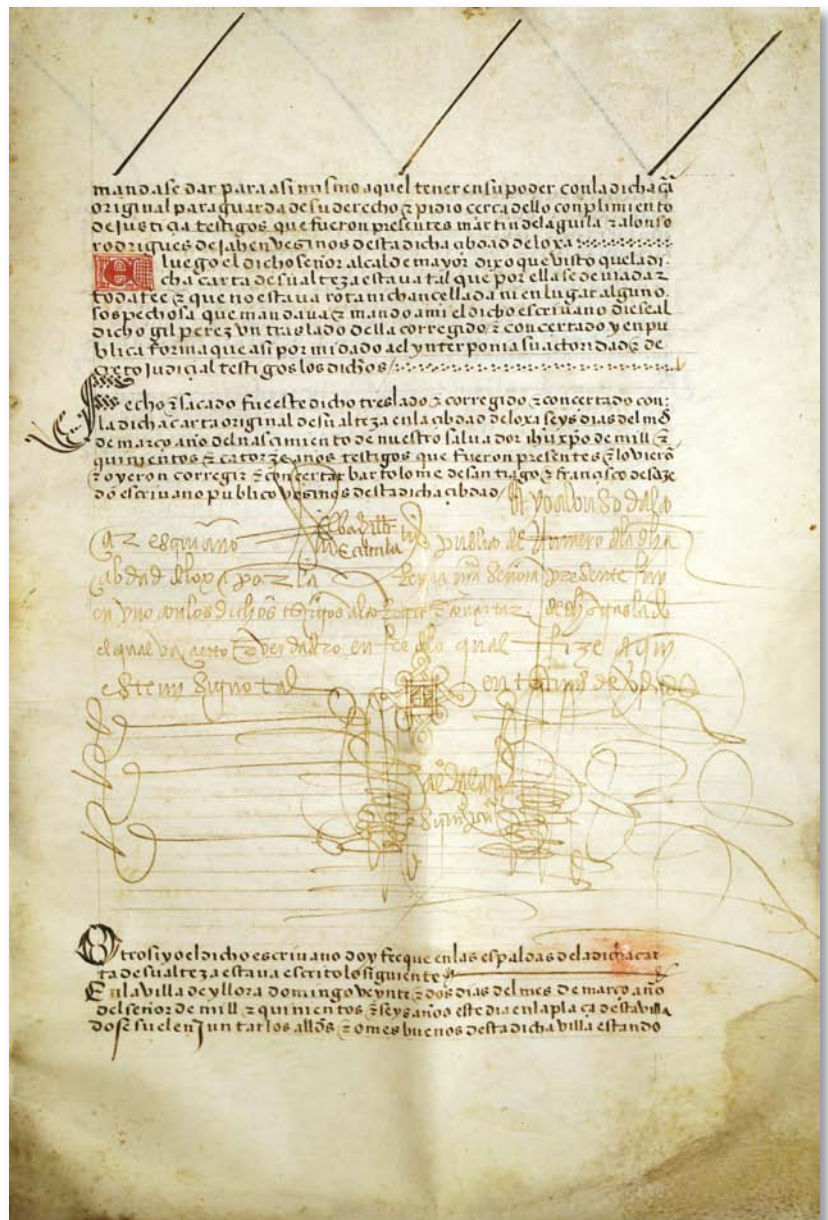 mandase dar para asi mismo aquel tener en su poder con la dicha cã
original para guarda de su derecho ⁊ pidio cerca dello conplimiento
de justiçia testigos que fueron presentes martin del aguila ⁊ alonso
rodrigues de jahen vesinos desta dicha çibdad de loxa
E luego el dicho señor alcalde mayor dixo que visto que la di
cha carta de su alteza estava tal que por ella se devia da ⁊
toda fee ⁊ que no estava rota ni chancellada ni en lugar alguno
sospechosa que mandava ⁊ mando a mi el dicho escrivano diese al
dicho gil perez vn traslado della corregido ⁊ concertado y en pu
blica forma que asi por mi dado a el ynterponia su actoridad ⁊ de
creto judiçial testigos los dichos
Fecho ⁊ sacado fue este dicho treslado ⁊ corregido ⁊ concertado con
la dicha carta original de su alteza en la çibdad de loxa seys dias del mẽ
de março año del nasçimiento de nuestro salvador ihũ xp̃o de mill ⁊
quinientos ⁊ catorze años testigos que fueron presentes ⁊ lo vierõ
⁊ oyeron corregir ⁊ concertar bartolome de santiago ⁊ françisco de
escrivano publico vesinos desta dicha çibdad
escrivano publico del numero
çibdad de loxa por la reyna nrã señora presente fuy
en vno con los dichos tẽgos
el qual va çierto ⁊ verdadero en fee de lo qual fize aqui
este mi signo tal en testimº de verdad
Otrosi yo el dicho escrivano doy fee que en las espaldas de la dicha car
ta de su alteza estava escrito lo siguiente
En la villa de yllora domingo veynte ⁊ dos dias del mes de março año
del señor de mill ⁊ quinientos ⁊ seys años este dia en la plaça desta villa
do se suelen juntar los allds̃ ⁊ omes buenos desta dicha villa estando